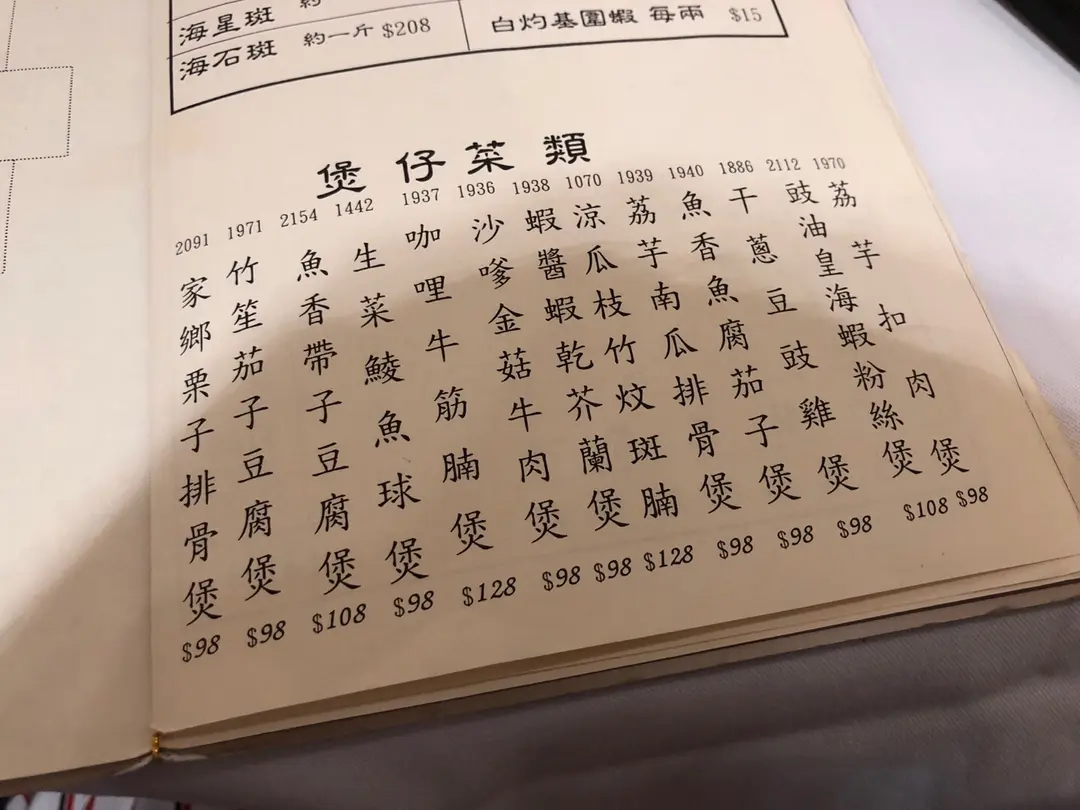 海星斑 約
海石斑 約一斤 $208
白灼基圍蝦 每兩 $15
煲仔菜類
1970 荔芋扣肉煲 $98
2112 豉油皇海蝦粉絲煲 $108
1886 干蔥豆豉雞煲 $98
1940 魚香魚腐茄子煲 $98
1939 荔芋南瓜排骨煲 $98
1070 涼瓜枝竹炆斑腩 $128
1938 蝦醬蝦乾芥蘭煲 $98
1936 沙嗲金菇牛肉煲 $98
1937 咖哩牛筋腩煲 $128
1442 生菜鯪魚球煲 $98
2154 魚香帶子豆腐煲 $108
1971 竹笙茄子豆腐煲 $98
2091 家鄉栗子排骨煲 $98